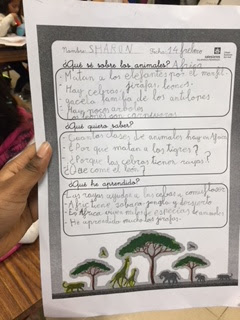 Nombre SHARON Fecha 14 febrero
¿Qué sé sobre los animales? Africa
- Matan a los elefantes por el marfil.
- Hay cebras, jirafas, leones.
- gacela familia de los antilopes
- Hay pocos arboles
- Los leones son carnivoros
¿Qué quiero saber?
- Cuantas clases de animales hay en Africa
- ¿Por que matan a los tigres?
- ¿Porque las cebras tienen rayas?
- ¿Que come el leon?
¿Qué he aprendido?
- Las rayas ayudan a las cebras a
- Africa tiene sabana, jungla y desierto
- En Africa viven
- He aprendido mucho las jirafas.